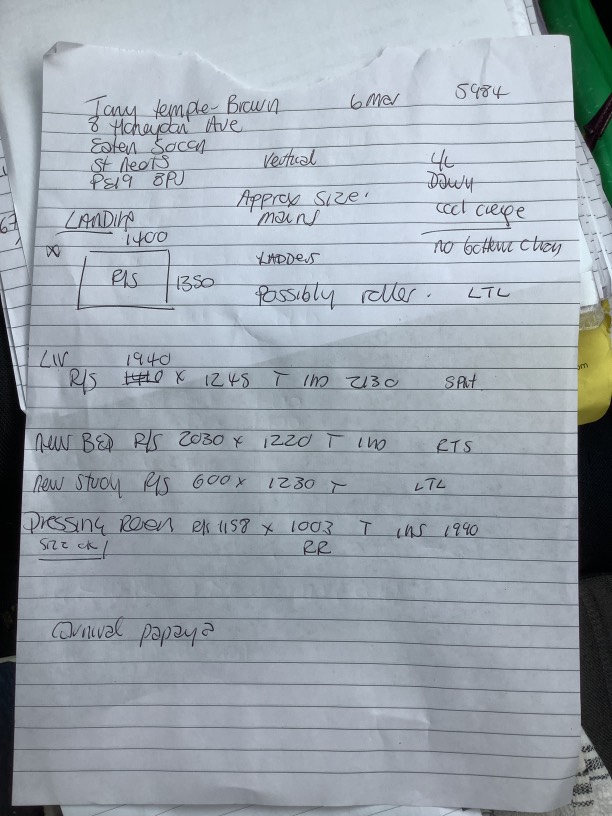 Tony temple-Brown 6 Mar 5984
8 Ave
Eaton Socon
St Neots Vertical
PE19 8PJ
Approx size.
LANDING mains
1400 no bottom chain
R/S 1350 LADDERS
Possibly roller. LTL
LIV 1940
R/S x 1245 T INS 2130 Split
New BED R/S 2030 x 1220 T INS RTS
New Study R/S 600 x 1230 T LTL
Dressing Room R/S 1158 x 1003 T INS 1990
Size ck RR
Carnival papaya